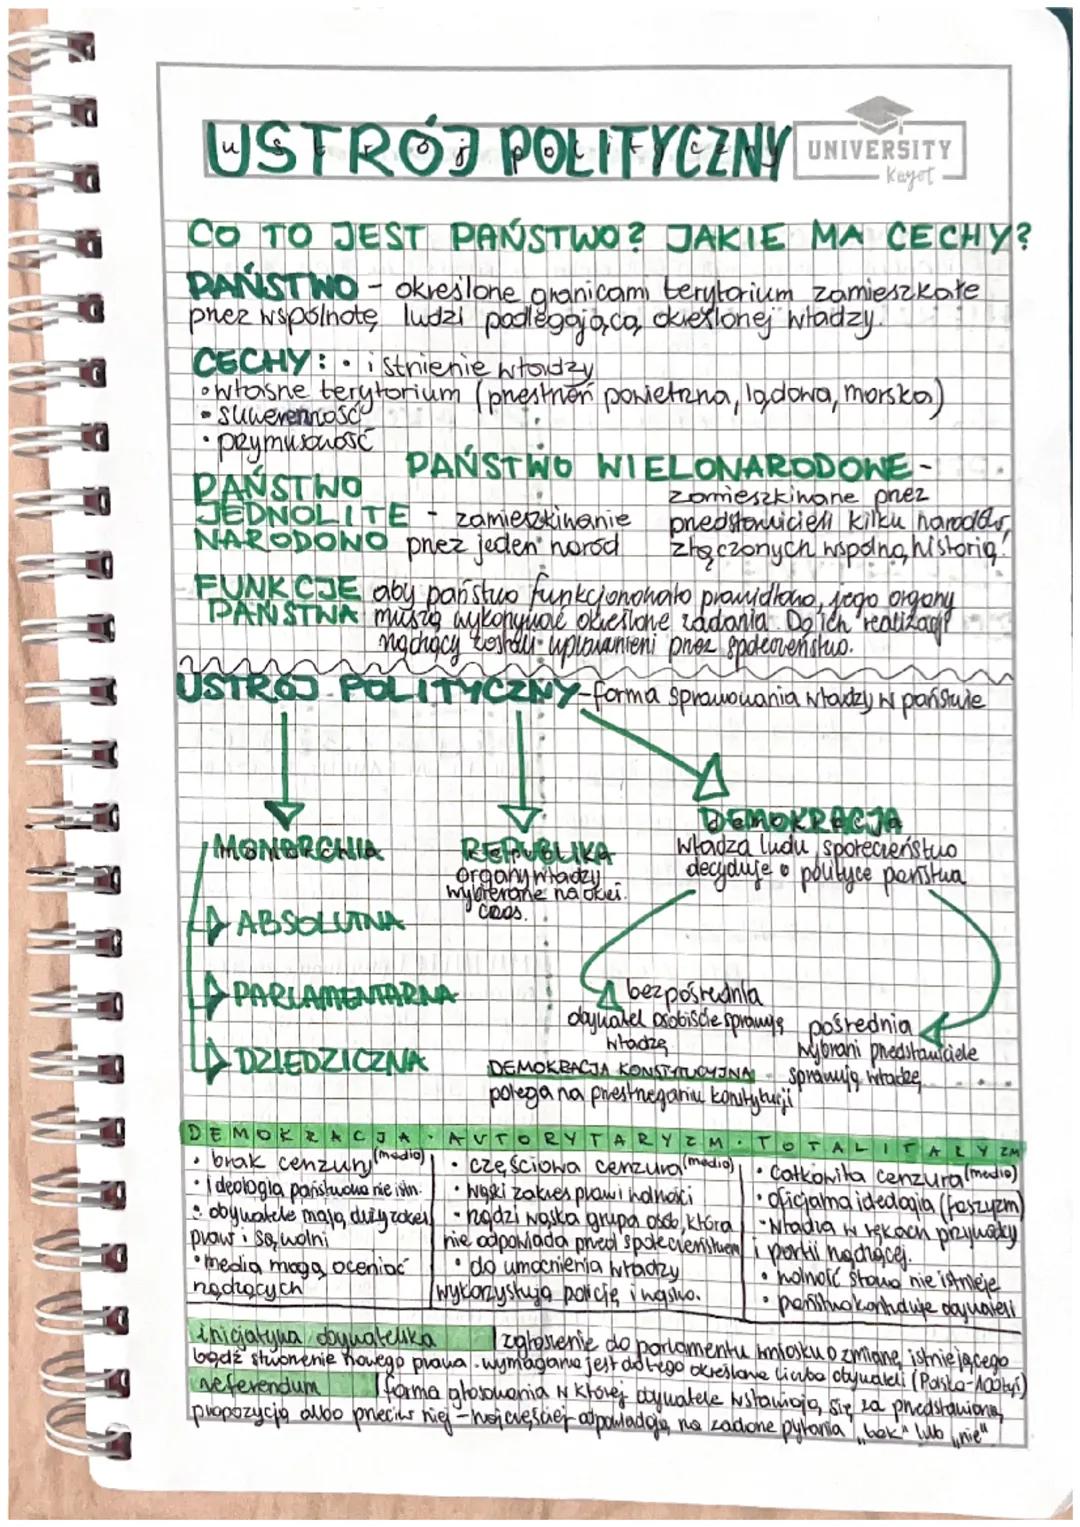 USTRÓJ POLITYCZNY
UNIVERSITY
Kayot
CO TO JEST PAŃSTWO? JAKIE MA CECHY?
PAŃSTWO - określone granicami terytorium zamieszkałe
przez wspólnotę ludzi podlegającą określonej władzy.
CECHY: • istnienie władzy
• własne terytorium (przestrzeń powietrzna, lądowa, morska)
• suwerenność
• przymusowość
PAŃSTWO JEDNOLITE NARODOWO - zamieszkiwanie
przez jeden naród
PAŃSTWO WIELONARODOWE -
zamieszkiwane przez
przedstawicieli kilku narodów,
złączonych wspólną historią.
FUNKCJE PAŃSTWA
aby państwo funkcjonowało prawidłowo, jego organy
muszą wykonywać określone zadania. Do ich realizacji
rządzący zostali uprawnieni przez społeczeństwo.
USTRÓJ POLITYCZNY - forma sprawowania władzy w państwie
MONARCHIA
ABSOLUTNA
PARLAMENTARNA
DZIEDZICZNA
REPUBLIKA
organy władzy
wybierane na okei.
czas.
DEMOKRACJA
władza ludu, społeczeństwo
decyduje o polityce państwa
bezpośrednia
obywatel osobiście sprawuję
władzę
pośrednia
wybrani przedstawiciele
sprawują władzę
DEMOKRACJA KONSTYTUCYJNA
polega na przestrzeganiu konstytucji
DEMOKRACJA • AUTORYTARYZM • TOTALITARYZM
• brak cenzury (media)
• ideologia państwowa nie istn.
• obywatele mają duży zakres
praw i są wolni
• media mogą oceniać
rządzących
• częściowa cenzura (media)
• wąski zakres praw i wolności
• rządzi wąska grupa osób, która
nie odpowiada przed społeczeństwem
• do umocnienia władzy
wykorzystują policję i wojsko.
• całkowita cenzura (media)
• oficjalna ideologia (faszyzm)
• władza w rękach przywódcy
i partii rządzącej.
• wolność słowa nie istnieje
• państwo kontroluje obywateli
inicjatywa obywatelska | zgłoszenie do parlamentu wniosku o zmianę istniejącego
bądź stworzenie nowego prawa. wymagana jest do tego określona liczba obywateli (Polska-100tyś)
referendum | forma głosowania w której obywatele wstawiają się za przedstawioną
propozycją albo przeciw niej - najczęściej odpowiadają na zadane pytania "tak" lub "nie"